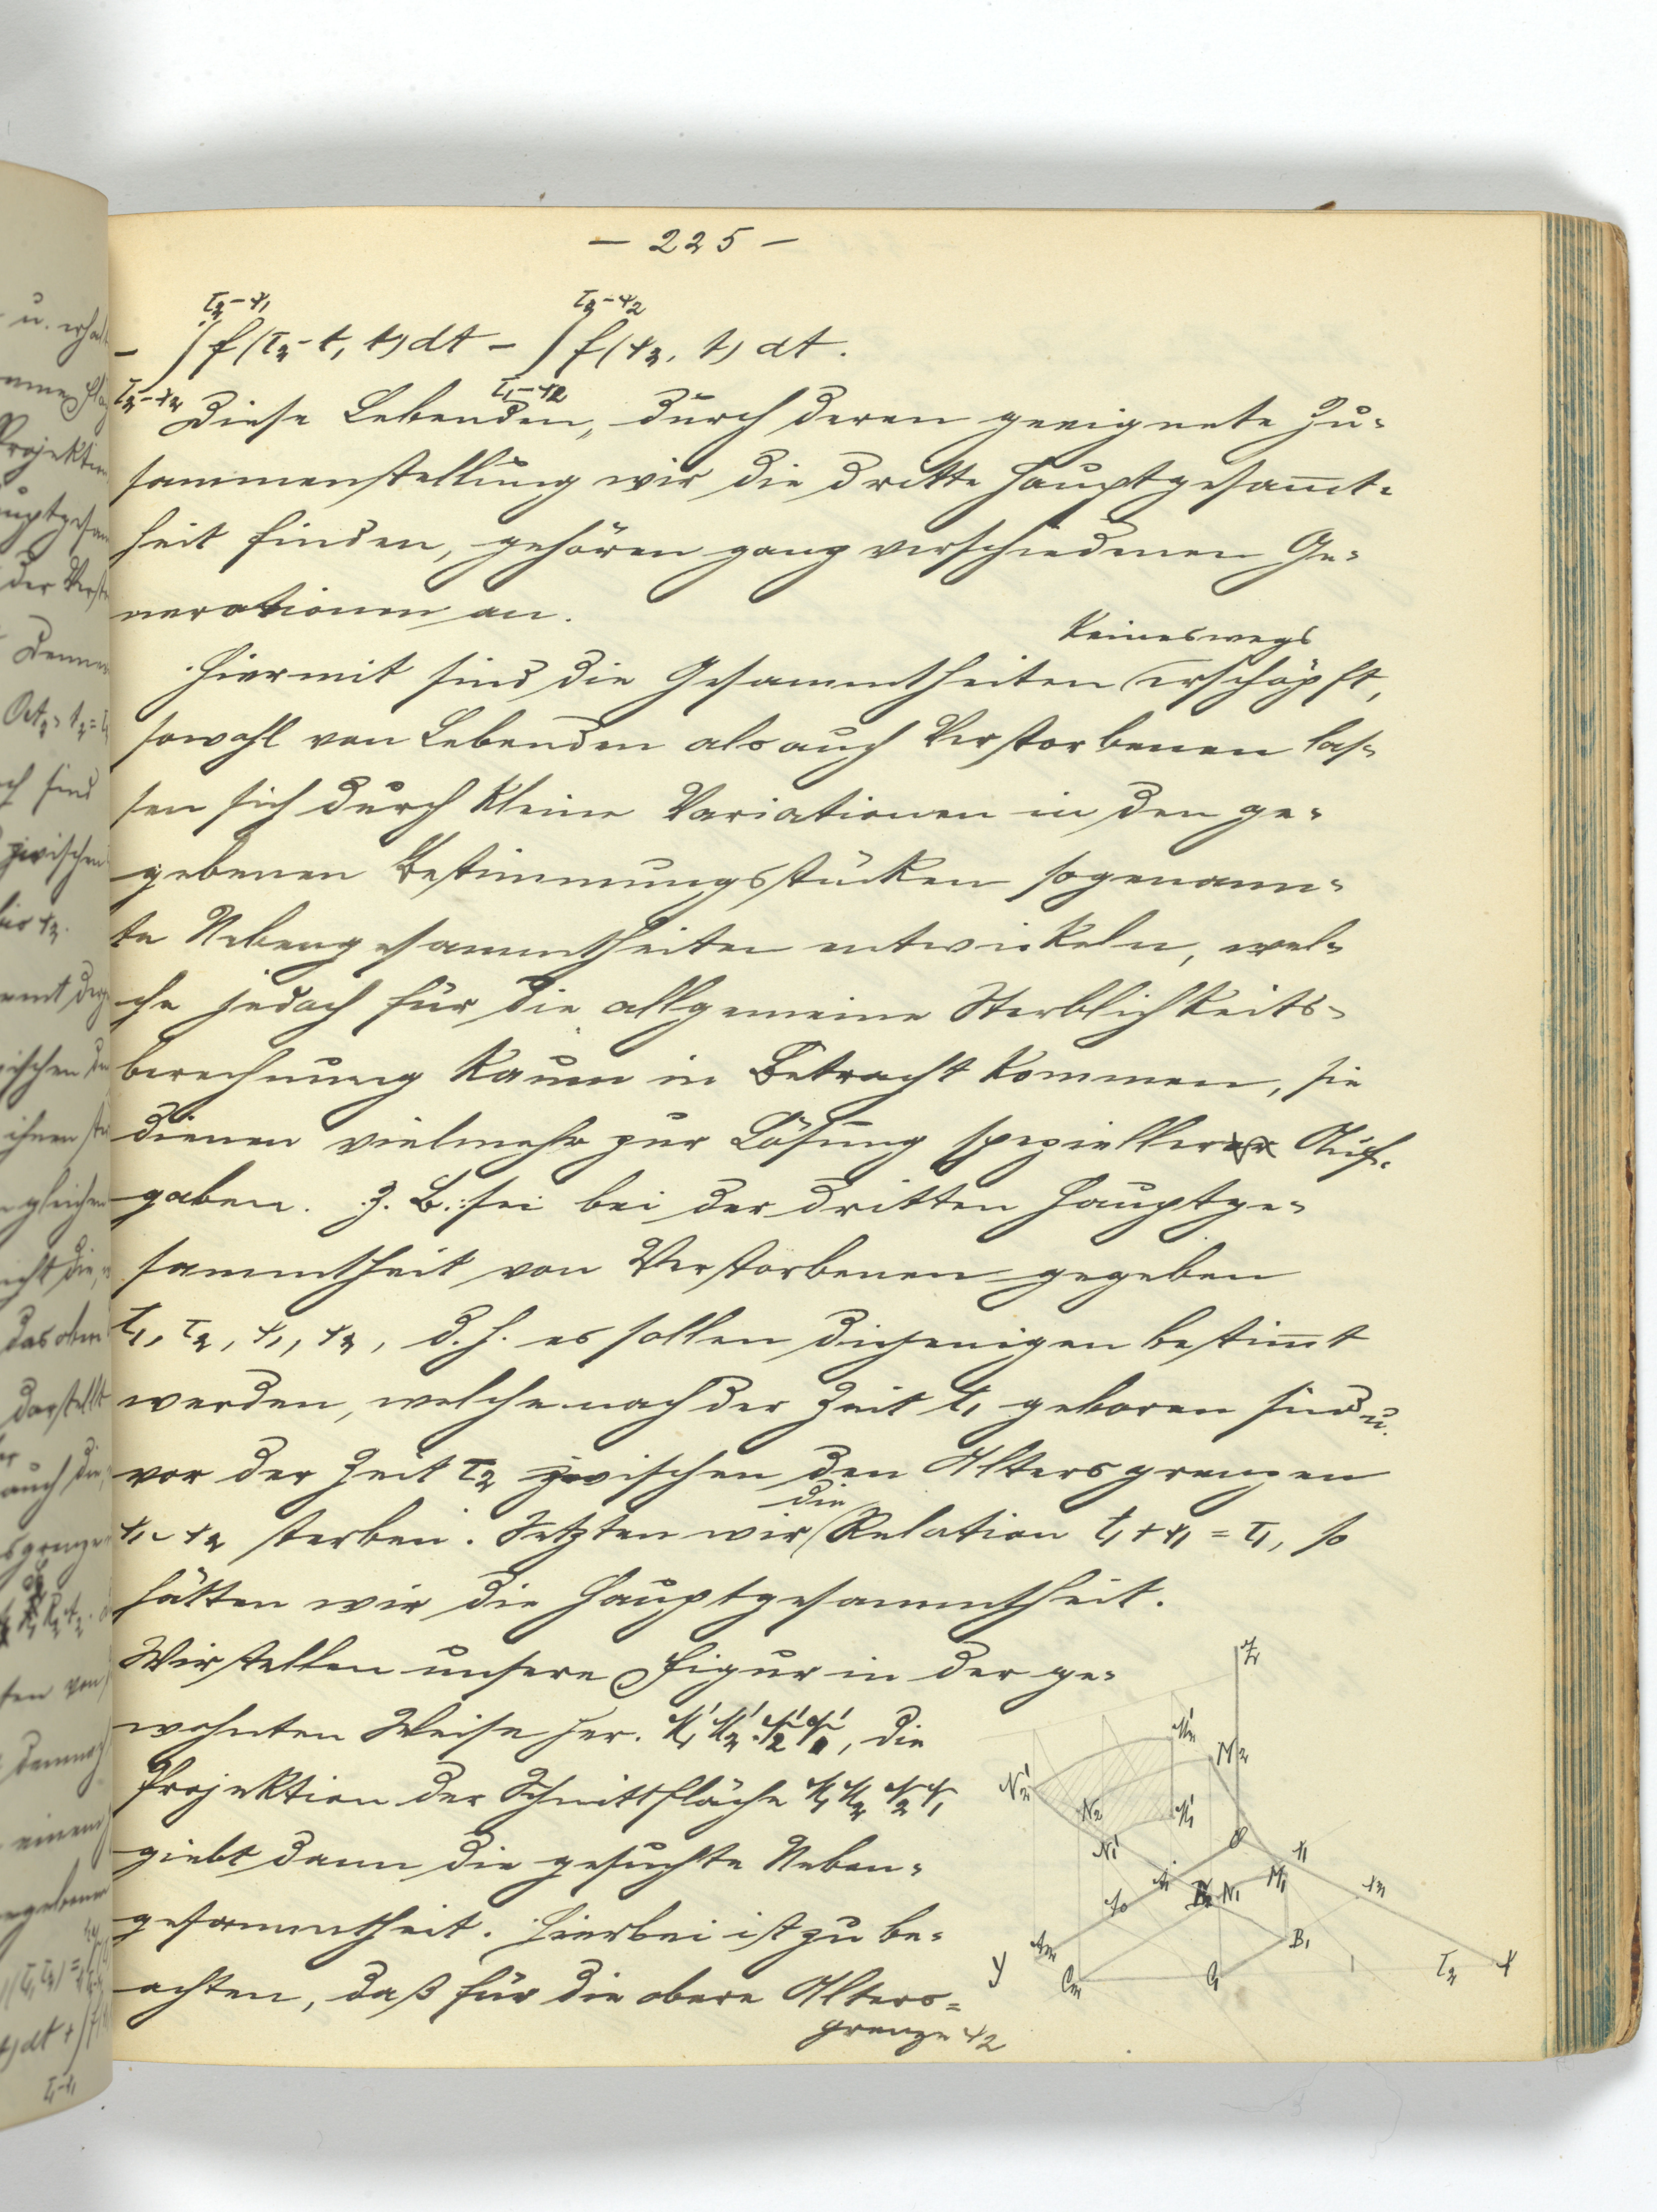 — 225 —
τ₂-x₁ τ₂-x₂
- ∫ f(τ₂-t, t) dt - ∫ f(x₂, t) dt.
τ₂-x₂ τ₁-x₂
Diese Lebenden, durch deren geeignete Zu-
sammenstellung wir die dritte Hauptgesam̄t-
heit finden, gehören ganz verschiedenen Ge-
nerationen an.
keineswegs
Hiermit sind die Gesammtheiten erschöpft,
sowohl von Lebenden als auch Verstorbenen las-
sen sich durch kleine Variationen in den ge-
gebenen Bestimmungsstücken sogenann-
te Nebengesammtheiten entwickeln, wel-
che jedoch für die allgemeine Sterblichkeits-
berechnung kaum in Betracht kommen, sie
dienen vielmehr zur Lösung spezieller Auf-
gaben. Z. B.: sei bei der dritten Hauptge-
sammtheit von Verstorbenen gegeben
t₁, τ₂, x₁, x₂, d. h. es sollen diejenigen bestim̄t
werden, welche nach der Zeit t₁ geboren sind u.
vor der Zeit τ₂ zwischen den Altersgrenzen
die
x₁ - x₂ sterben. Setzten wir Relation t₁ + x₁ = τ₁, so
hätten wir die Hauptgesammtheit.
Wir stellen unsere Figur in der ge-
wohnten Weise her. M₁' M₂' N₂' N₁', die
Projektion der Schnittfläche M₁ M₂ N₂ N₁
giebt dann die gesuchte Neben-
gesammtheit. Hierbei ist zu be-
achten, daß für die obere Alters-
grenze x₂
Z
M₂'
M₂
N₂'
N₂
M₁'
N₁'
O
x₁
t₁
N₁
M₁
x₂
t₀
B₁
Y
C₂
C₁
τ₂
X